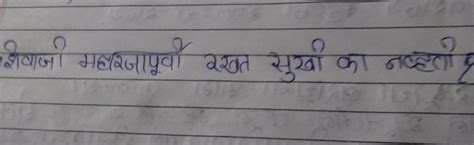 शिवाजी महाराजापूर्वी रयत सुखी का नव्हती